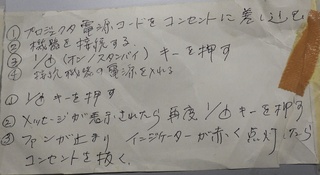 ① プロジェクタ電源コードをコンセントに差し込む
② 機器を接続する.
③ 1/⏻ (オン/スタンバイ) キーを押す
④ 接続機器の電源を入れる
① 1/⏻ キーを押す
② メッセージが表示されたら再度 1/⏻ キーを押す
③ ファンが止まり インジケーターが赤く点灯したら
コンセントを抜く.